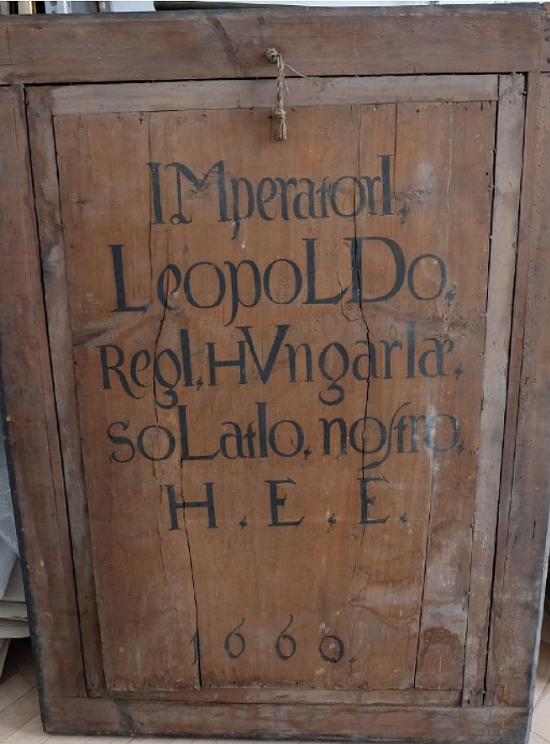 IMperatorI,
LeopoLDo,
RegI, HVngarIæ,
soLatIo, noſtro,
H . E . E .
1660.